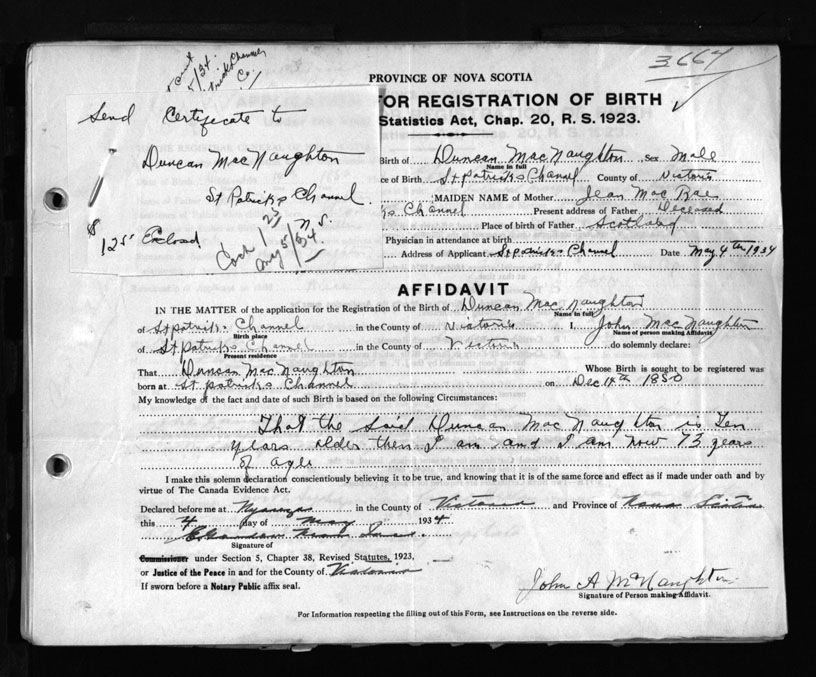 3667
Send Certificate to
Duncan MacNaughton
St Patricks Channel
$1 25 Enclosd
PROVINCE OF NOVA SCOTIA
FOR REGISTRATION OF BIRTH
Statistics Act, Chap. 20, R. S. 1923.
Birth of Duncan MacNaughton Sex Male
Name in full
ce of Birth of St Patricks Channel County of Victoria
MAIDEN NAME of Mother Jean MacRae
ks Channel Present address of Father Deceased
Place of birth of Father Scotland
Physician in attendance at birth
Address of Applicant St patricks Channel Date May 4th 1934
AFFIDAVIT
IN THE MATTER of the application for the Registration of the Birth of Duncan MacNaughton
Name in full
of St patricks Channel in the County of Victoria I, John MacNaughton
Birth place Name of person making Affidavit
of St Patricks Channel in the County of Victoria do solemnly declare:
Present residence
That Duncan MacNaughton Whose Birth is sought to be registered was
born at St patricks Channel on Dec 14th 1850
My knowledge of the fact and date of such Birth is based on the following Circumstances:
That the said Duncan MacNaughton is Ten
years older then I am and I am now 73 years
of age
I make this solemn declaration conscientiously believing it to be true, and knowing that it is of the same force and effect as if made under oath and by
virtue of The Canada Evidence Act.
Declared before me at Nyanza in the County of Victoria and Province of Nova Scotia
this 4 day of May 1934
Signature of
Commissioner under Section 5, Chapter 38, Revised Statutes, 1923,
or Justice of the Peace in and for the County of Victoria
If sworn before a Notary Public affix seal.
John A McNaughton
Signature of Person making Affidavit.
For Information respecting the filling out of this Form, see Instructions on the reverse side.